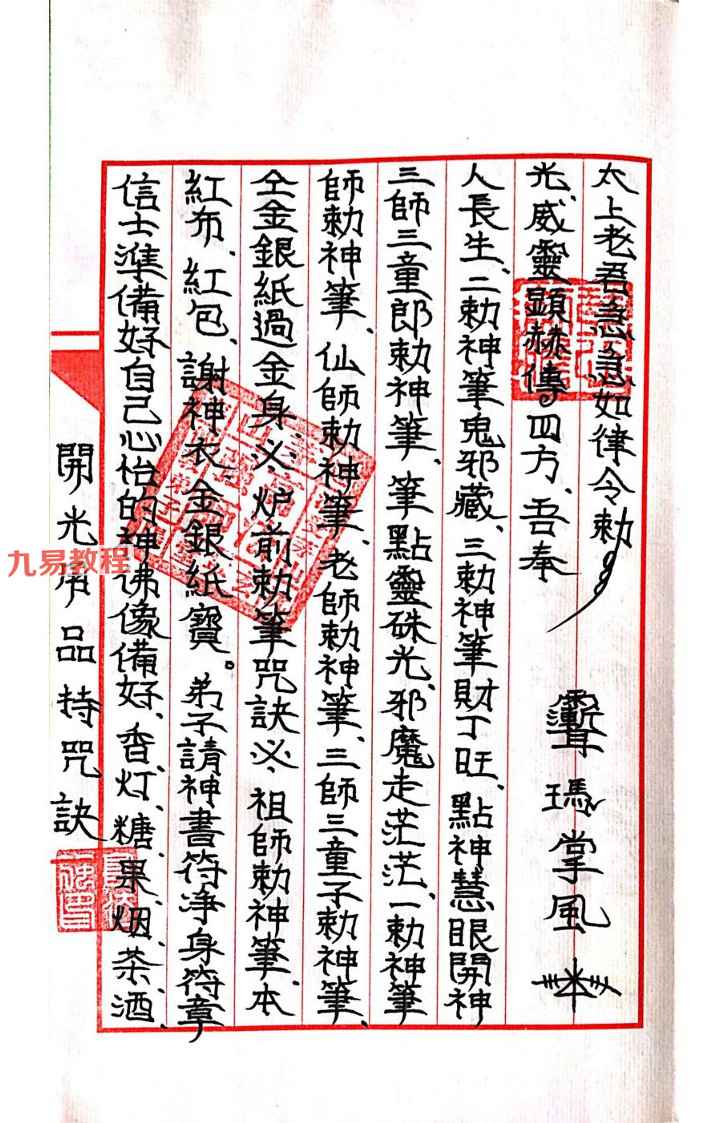 開光用品持咒訣
信士準備好自己心怡的神佛像備好、香灯、糖、果、烟、茶、酒、
紅布、紅包、謝神衣、金銀紙寶。弟子請神書符净身符章
仝金銀紙過金身※炉前勅筆咒訣※祖師勅神筆、本
師勅神筆、仙師勅神筆、老師勅神筆、三師三童子勅神筆、
三師三童郎勅神筆、筆點靈硃光、邪魔走茫茫、一勅神筆
人長生、二勅神筆鬼邪藏、三勅神筆財丁旺、點神慧眼開神
光、威靈顯赫傳四方、吾奉
太上老君急急如律令勅
掌風
九易教程